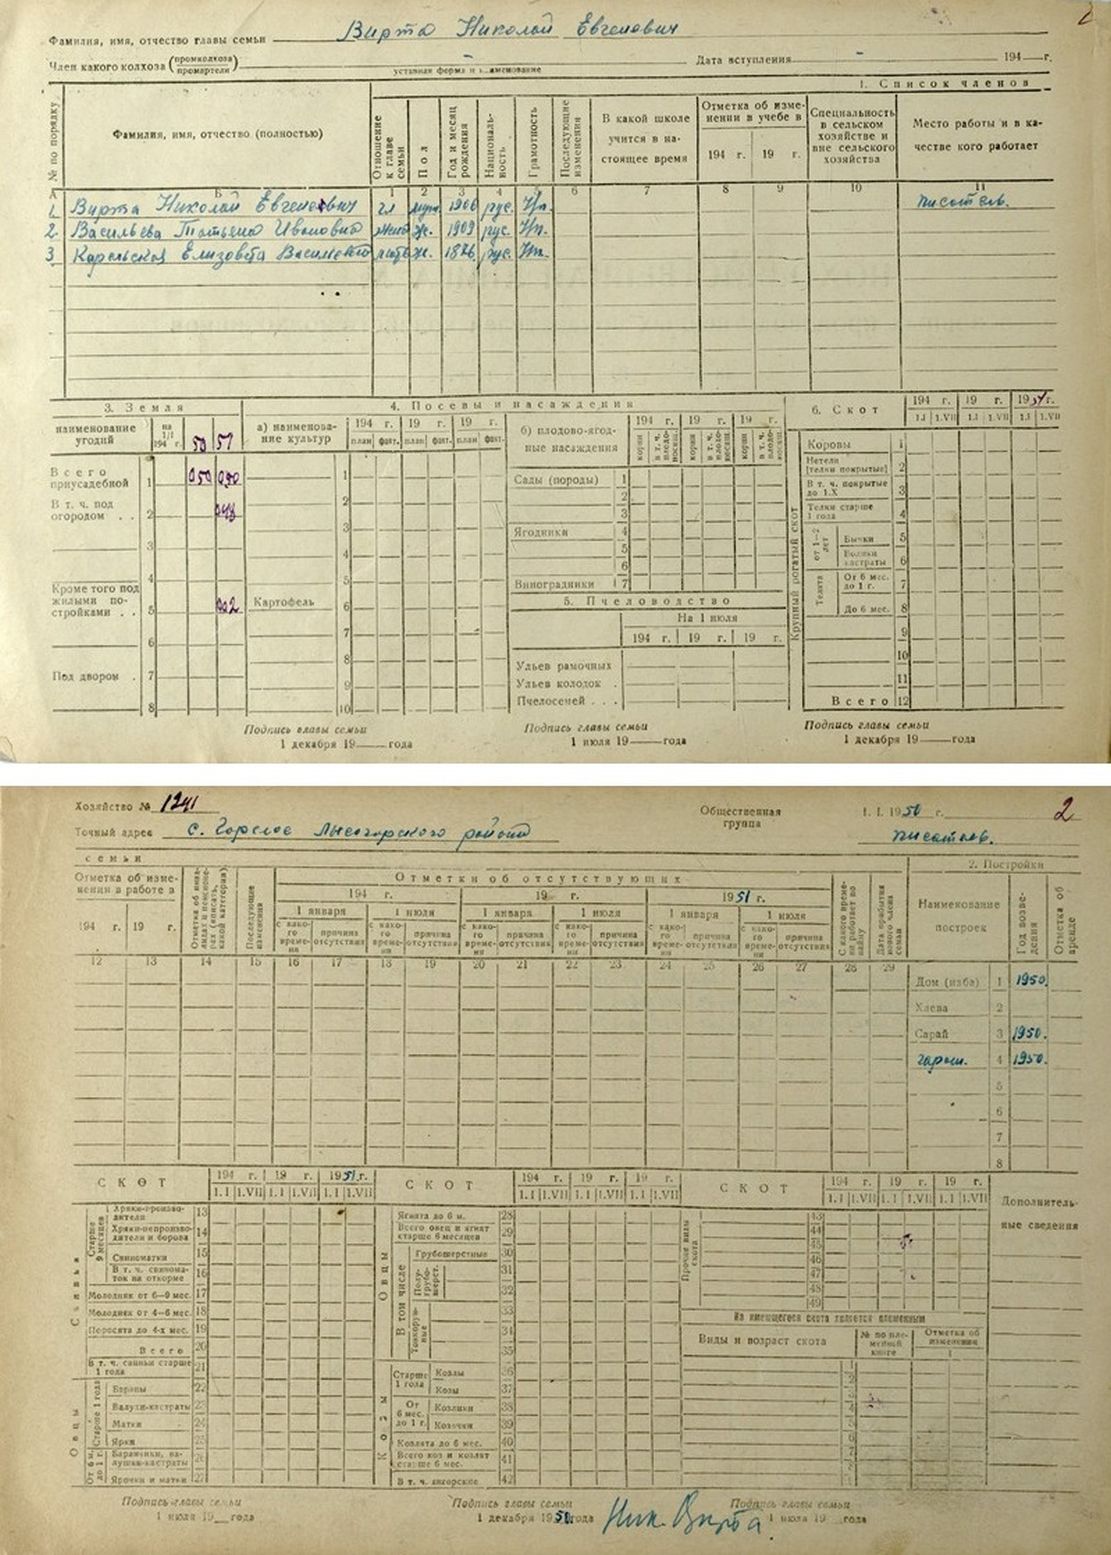 Фамилия, имя, отчество главы семьи Вирта Николай Евгеневич
Член какого колхоза (промколхоза промартели)
уставная форма и наименование
Дата вступления 194 г.
1. Список членов
№ по порядку
Фамилия, имя, отчество (полностью)
Отношение к главе семьи
Пол
Год и месяц рождения
Национальность
Грамотность
Последующие изменения
В какой школе учится в настоящее время
Отметка об изменении в учебе в
194 г. 19 г.
Специальность в сельском хозяйстве и вне сельского хозяйства
Место работы и в качестве кого работает
А Б 1 2 3 4 5 6 7 8 9 10 11
1 Вирта Николай Евгеневич гл муж 1906 рус. Гр. писатель.
2 Васильева Татьяна Ивановна жена ж. 1909 рус. Гр.
3 Карельская Елизовета Васильевна мать ж. рус. Гр.
3. Земля
наименование угодий
на 1/I 194 г. 50 51
Всего приусадебной 1 050 050
В т. ч. под огородом . . 2 048
3
4
Кроме того под жилыми постройками . . 5 002
6
Под двором . 7
8
4. Посевы и насаждения
а) наименование культур
194 г. 19 г. 19 г.
план факт. план факт. план факт.
1
2
3
4
5
Картофель 6
7
8
9
10
б) плодово-ягодные насаждения
194 г. 19 г. 19 г.
корни в т. ч. плодоносящ. корни в т. ч. плодоносящ. корни в т. ч. плодоносящ.
Сады (породы) 1
2
3
Ягодники 4
5
6
Виноградники 7
5. Пчеловодство
На 1 июля
194 г. 19 г. 19 г.
Ульев рамочных
Ульев колодок .
Пчелосемей . . .
6. Скот
194 г. 19 г. 1951 г.
1.I 1.VII 1.I 1.VII 1.I 1.VII
Крупный рогатый скот
Коровы 1
Нетели [телки покрытые] 2
В т. ч. покрытые до 1.X 3
Телки старше 1 года 4
от 1—2 лет
Бычки 5
Волики кастраты 6
Телята
От 6 мес. до 1 г. 7
До 6 мес. 8
9
10
11
Всего 12
Подпись главы семьи
1 декабря 19 года
Подпись главы семьи
1 июля 19 года
Подпись главы семьи
1 декабря 19 года
Хозяйство № 1241
Общественная группа
1. I. 1950 г.
2
Точный адрес с. Горелое Лысогорского района
писатель.
семьи
2. Постройки
Отметка об изменении в работе в
194 г. 19 г.
Последующие изменения
Отметки об отсутствующих
194 г. 19 г. 1951 г.
1 января 1 июля 1 января 1 июля 1 января 1 июля
с какого времени причина отсутствия с какого времени причина отсутствия с какого времени причина отсутствия с какого времени причина отсутствия с какого времени причина отсутствия с какого времени причина отсутствия
Дата прибытия нового члена семьи
Наименование построек
Год возведения
Отметка об аренде
12 13 14 15 16 17 18 19 20 21 22 23 24 25 26 27 28 29
Дом (изба) 1 1950.
Хлева 2
Сарай 3 1950.
гараж. 4 1950.
5
6
7
8
СКОТ
194 г. 19 г. 1951 г.
1.I 1.VII 1.I 1.VII 1.I 1.VII
Свиньи
Старше 9 месяцев
Хряки-производители 13
Хряки-непроизводители и борова 14
Свиноматки 15
В т. ч. свиноматок на откорме 16
Молодняк от 6—9 мес. 17
Молодняк от 4—6 мес. 18
Поросята до 4-х мес. 19
Всего 20
В т. ч. свиньи старше 1 года 21
Овцы
Старше 1 года
Бараны 22
Валухи-кастраты 23
Матки 24
Ярки 25
От 6 м. до 1 г.
Баранчики, валушки-кастраты 26
Ярочки и матки 27
СКОТ
194 г. 19 г. 19 г.
1.I 1.VII 1.I 1.VII 1.I 1.VII
Овцы
Ягнята до 6 м. 28
Всего овец и ягнят старше 6 месяцев 29
В том числе
Грубошерстные 30
Полугрубошерст. 31
32
Тонкорунные 33
34
35
Козы
Старше 1 года
Козлы 36
Козы 37
От 6 мес. до 1 г.
Козлики 38
Козочки 39
Козлята до 6 мес. 40
Всего коз и козлят старше 6 мес. 41
В т. ч. ангорские 42
СКОТ
194 г. 19 г. 19 г.
1.I 1.VII 1.I 1.VII 1.I 1.VII
Прочие виды скота
43
44
45
46
47
48
49
Из имеющегося скота является племенным
Виды и возраст скота
№ по племенной книге
Отметка об изменении
Дополнительные сведения
Подпись главы семьи
1 июля 19 года
Подпись главы семьи
1 декабря 1950 года
Ник. Вирта
Подпись главы семьи
1 июля 19 года